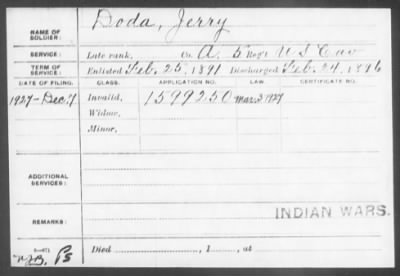 NAME OF SOLDIER: Doda, Jerry
SERVICE: Late rank, Co. A, 5 Reg't U S Cav
TERM OF SERVICE: Enlisted Feb. 25, 1891 Discharged Feb. 24, 1896
DATE OF FILING. CLASS. APPLICATION NO. LAW. CERTIFICATE NO.
1927-Dec. 7 Invalid, 1599250 Mar 3 1927
Widow,
Minor,
ADDITIONAL SERVICES:
INDIAN WARS.
REMARKS:
Died , 1 , at